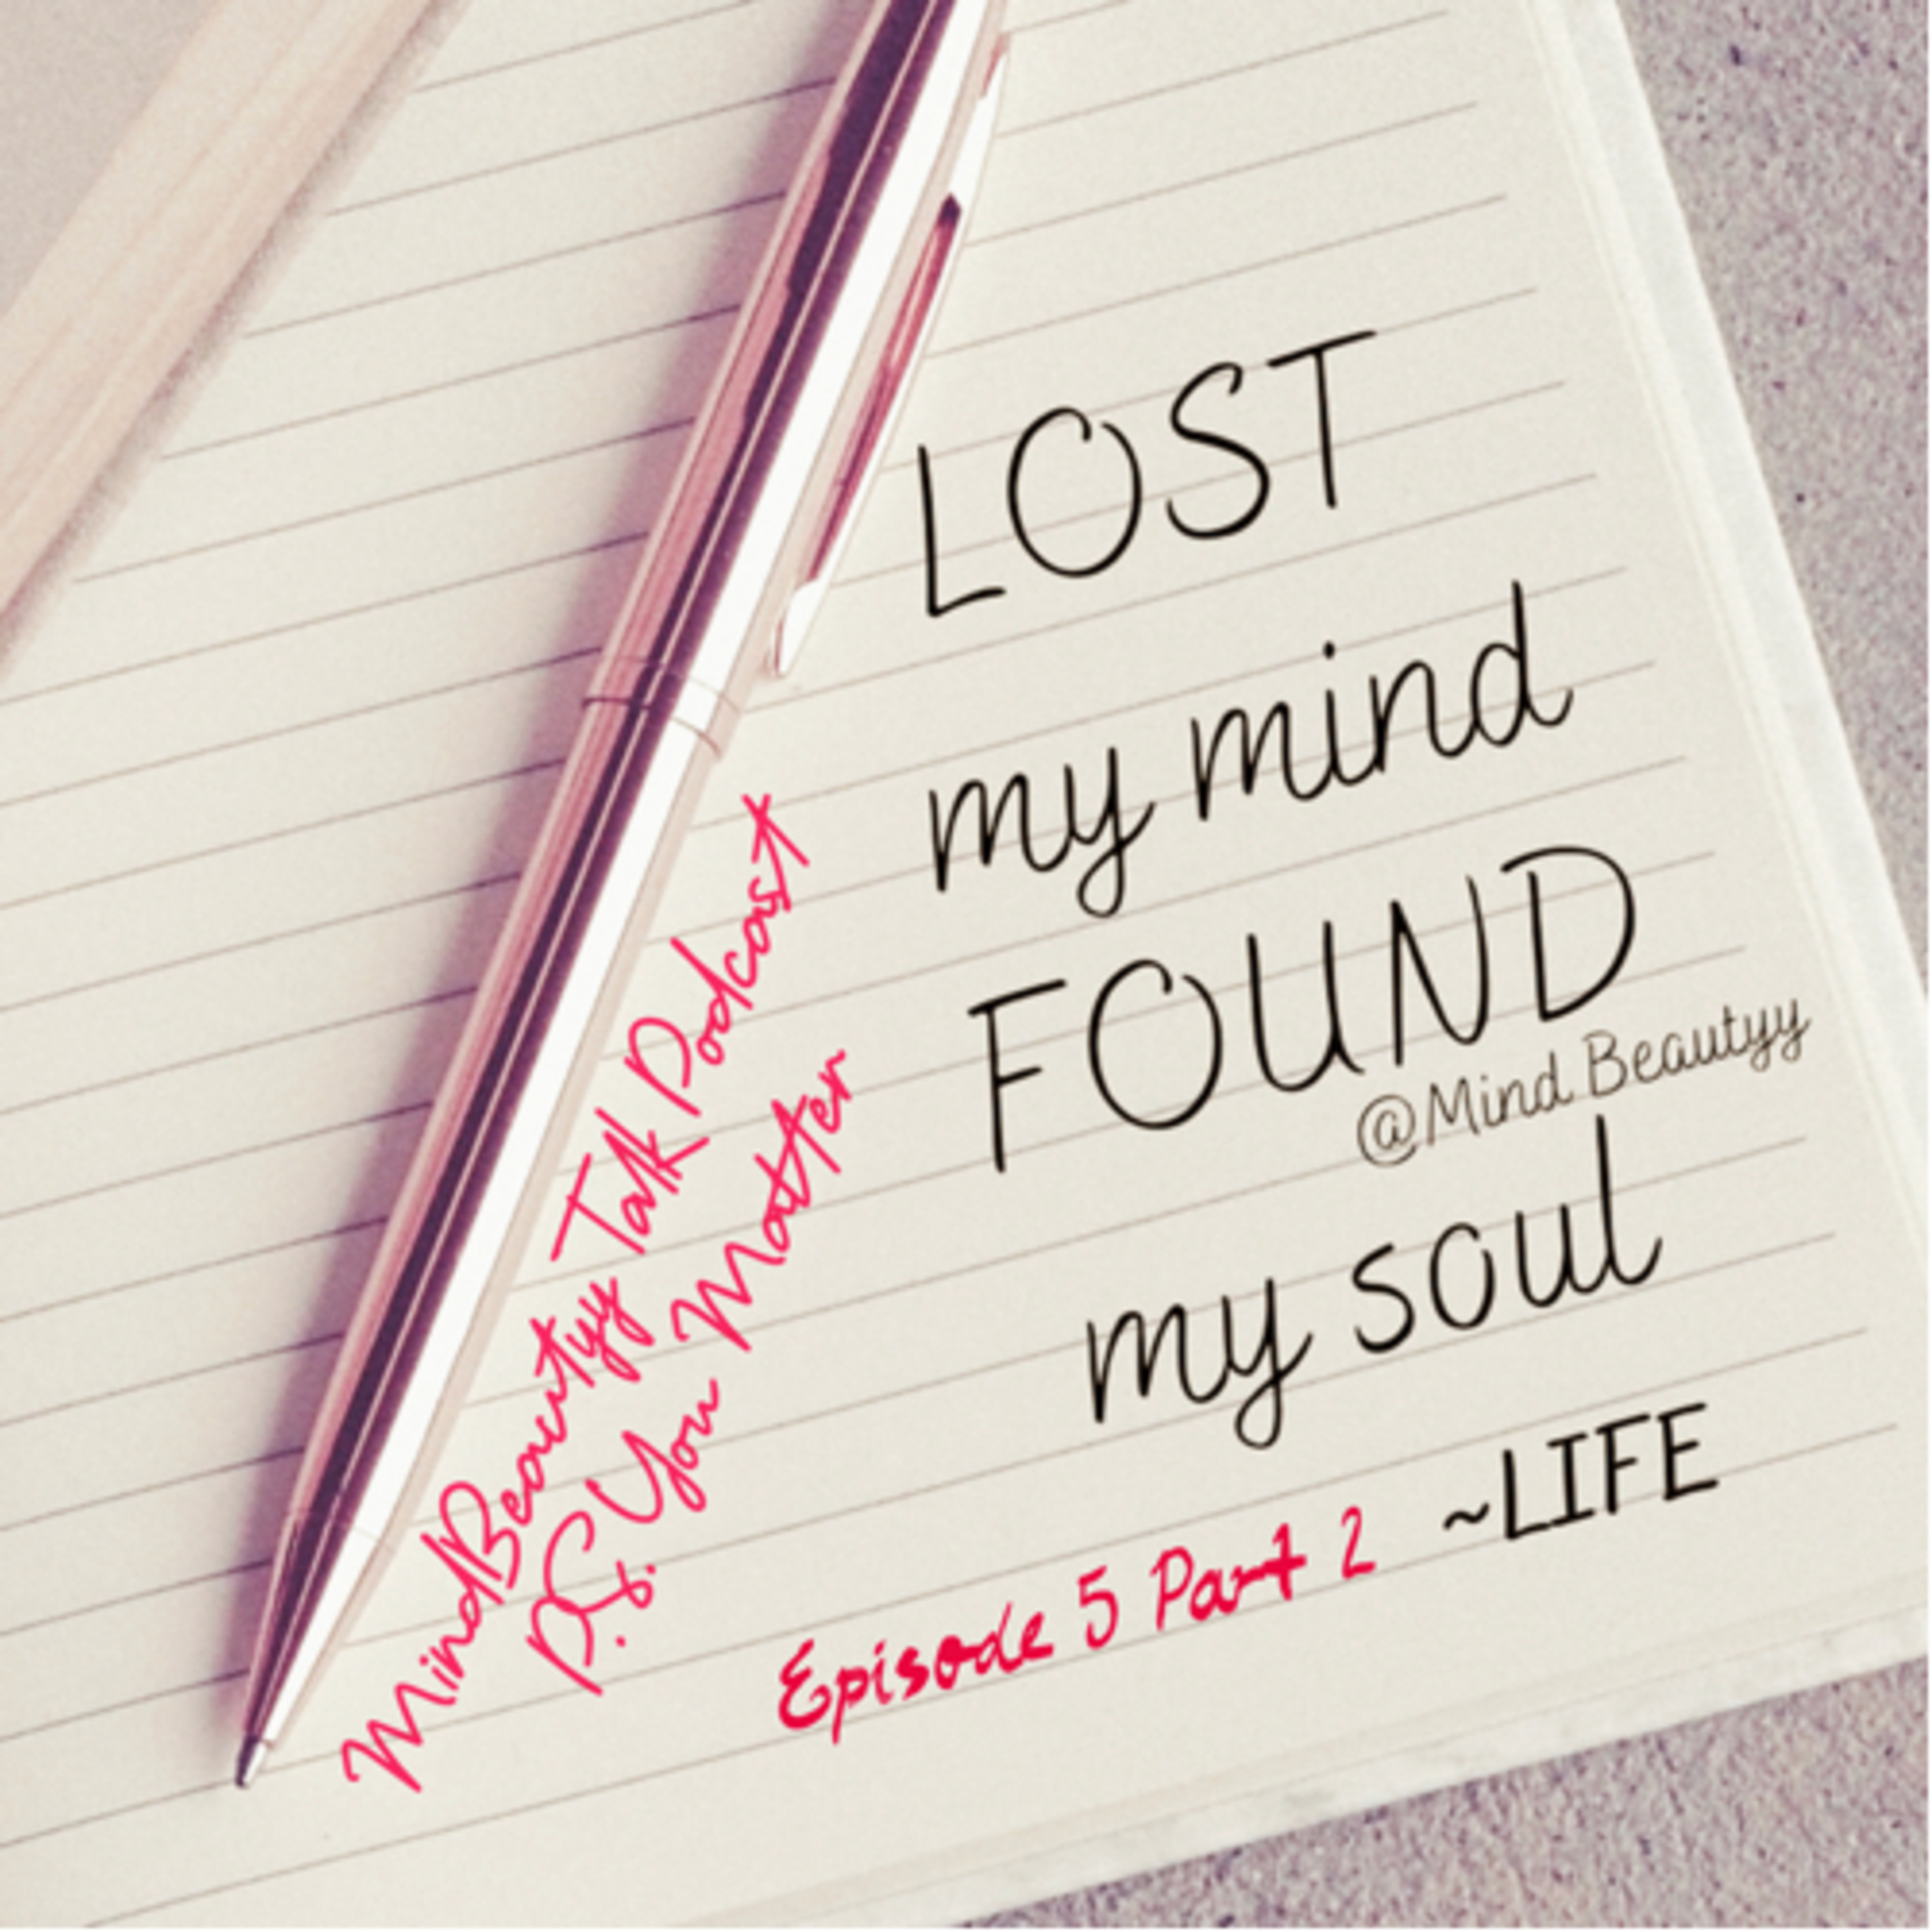 LOST
my mind
FOUND
@Mind Beautyy
my soul
~LIFE
MindBeautyy Talk Podcast
P.S. You Matter
Episode 5 Part 2